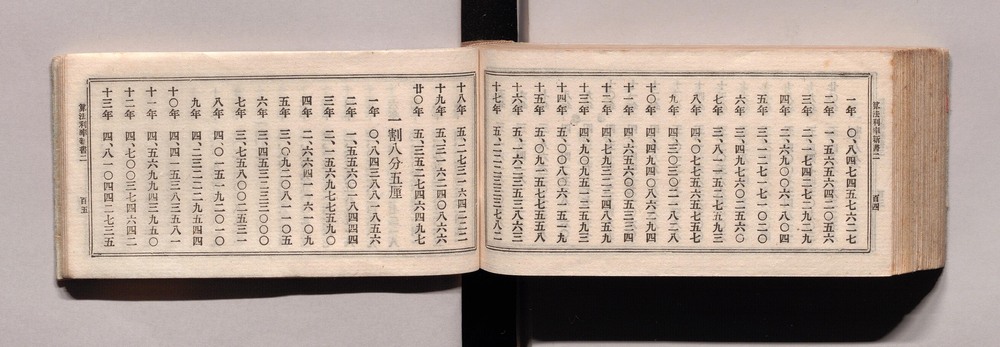 算法利率新書二
百四
一年 〇、八四七四五七六二七
二年 一、五六五六四二〇五六
三年 二、一七四二七二九二九
四年 二、六九〇〇六一八〇四
五年 三、一二七一七一〇二〇
六年 三、四九七六〇二五六〇
七年 三、八一一五二七五九三
八年 四、〇七七五六五七五七
九年 四、三〇三〇二一八二八
十〇年 四、四九四〇八六二九四
十一年 四、六五六〇〇五三三四
十二年 四、七九三二二四八五九
十三年 四、九〇九五一二五九三
十四年 五、〇〇八〇六一五一九
十五年 五、〇九一五七七五五八
十六年 五、一六二三五三八六三
十七年 五、二二二三三三七八二
十八年 五、二七三一六四二二二
十九年 五、三一六二四〇八六六
廿〇年 五、三五二七四六四九七
一割八分五厘
一年 〇、八四三八八一八五六
二年 一、五五六〇一八四四四
三年 二、一五六九七七五九〇
四年 二、六六四一一六一〇九
五年 三、〇九二〇八一一〇五
六年 三、四五三二三三〇〇〇
七年 三、七五八〇〇二五三一
八年 四、〇一五一九二〇一〇
九年 四、二三二二二九五四四
十〇年 四、四一五三八三五八一
十一年 四、五六九九四三九五〇
十二年 四、七〇〇三七四六四二
十三年 四、八一〇四四二七三五
算法利率新書二
百五